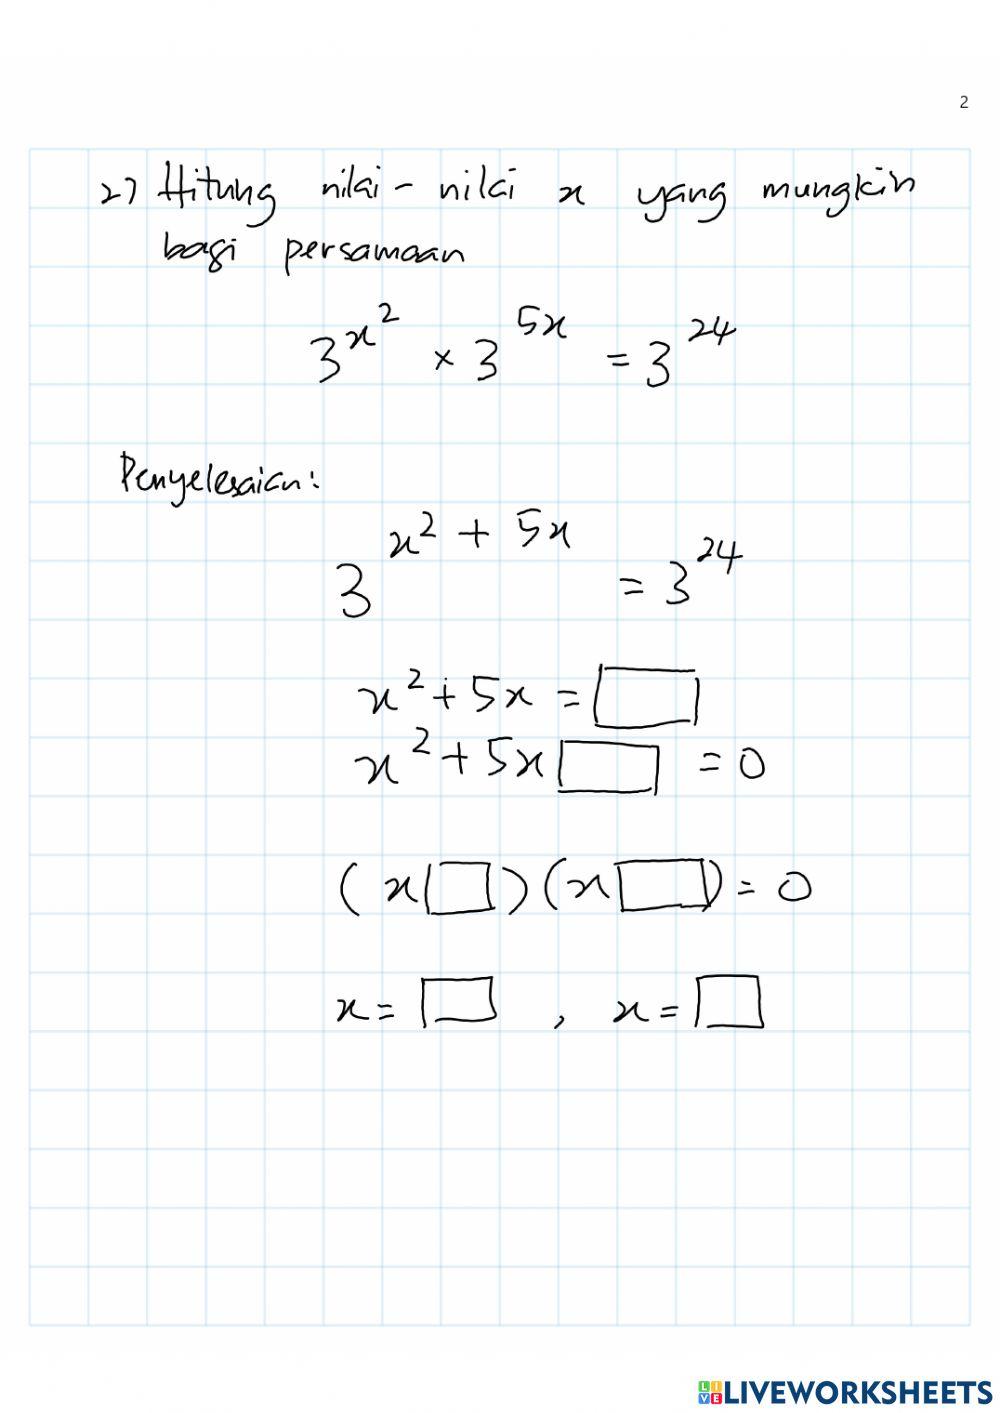 2
2) Hitung nilai - nilai x yang mungkin
bagi persamaan
3^{x^2} × 3^{5x} = 3^{24}
Penyelesaian:
3^{x^2 + 5x} = 3^{24}
x^2 + 5x =
x^2 + 5x = 0
(x ) (x ) = 0
x = , x =
LIVEWORKSHEETS